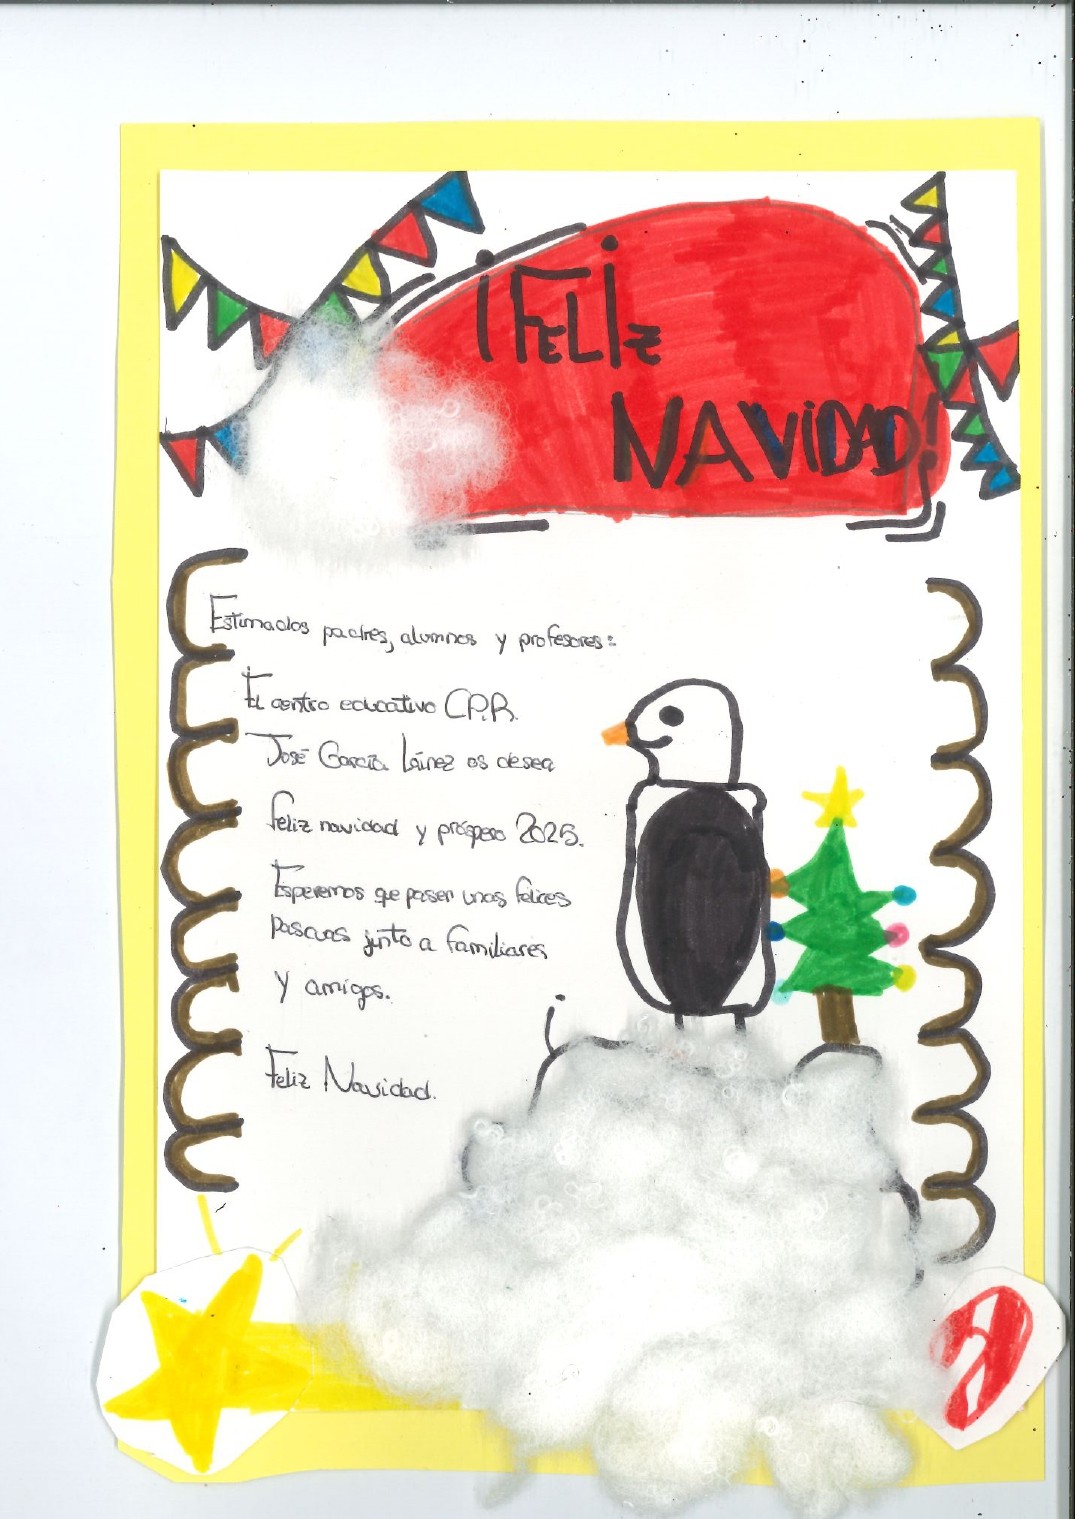 ¡FELIZ
NAVIDAD!
Estimados padres, alumnos y profesores:
El centro educativo C.P.R.
José García Láinez os desea
feliz navidad y próspero 2025.
Esperemos que pasen unas felices
pascuas junto a familiares
y amigos.
Feliz Navidad.